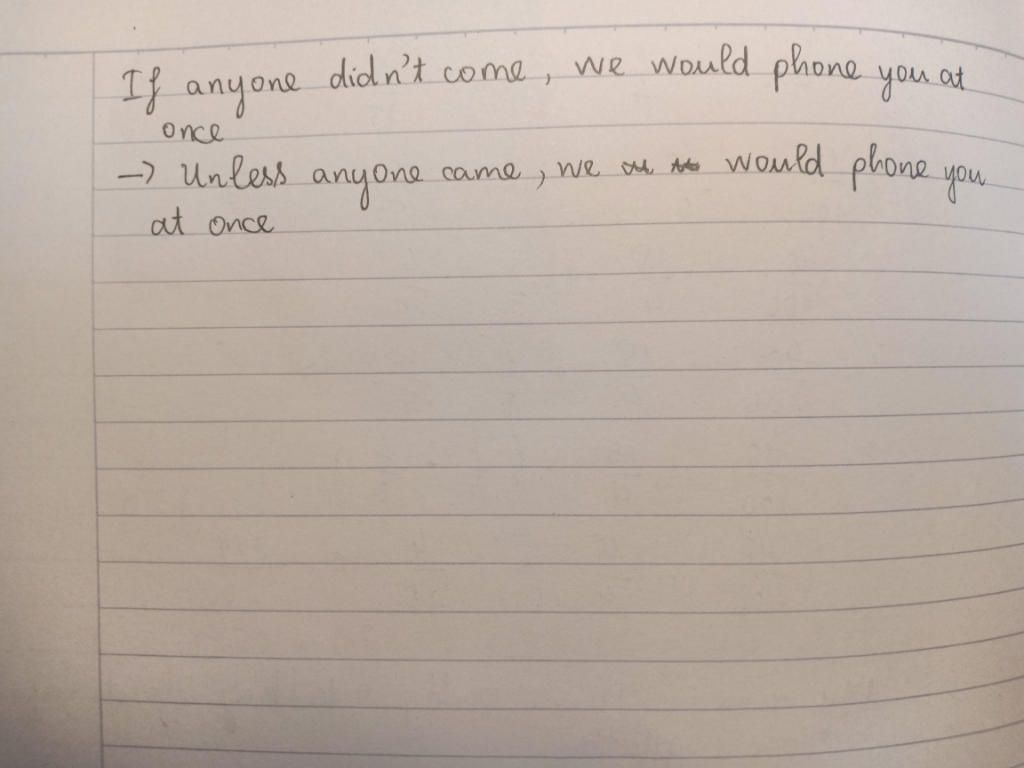 If anyone didn't come, we would phone you at
once
→ Unless anyone came, we would phone you
at once